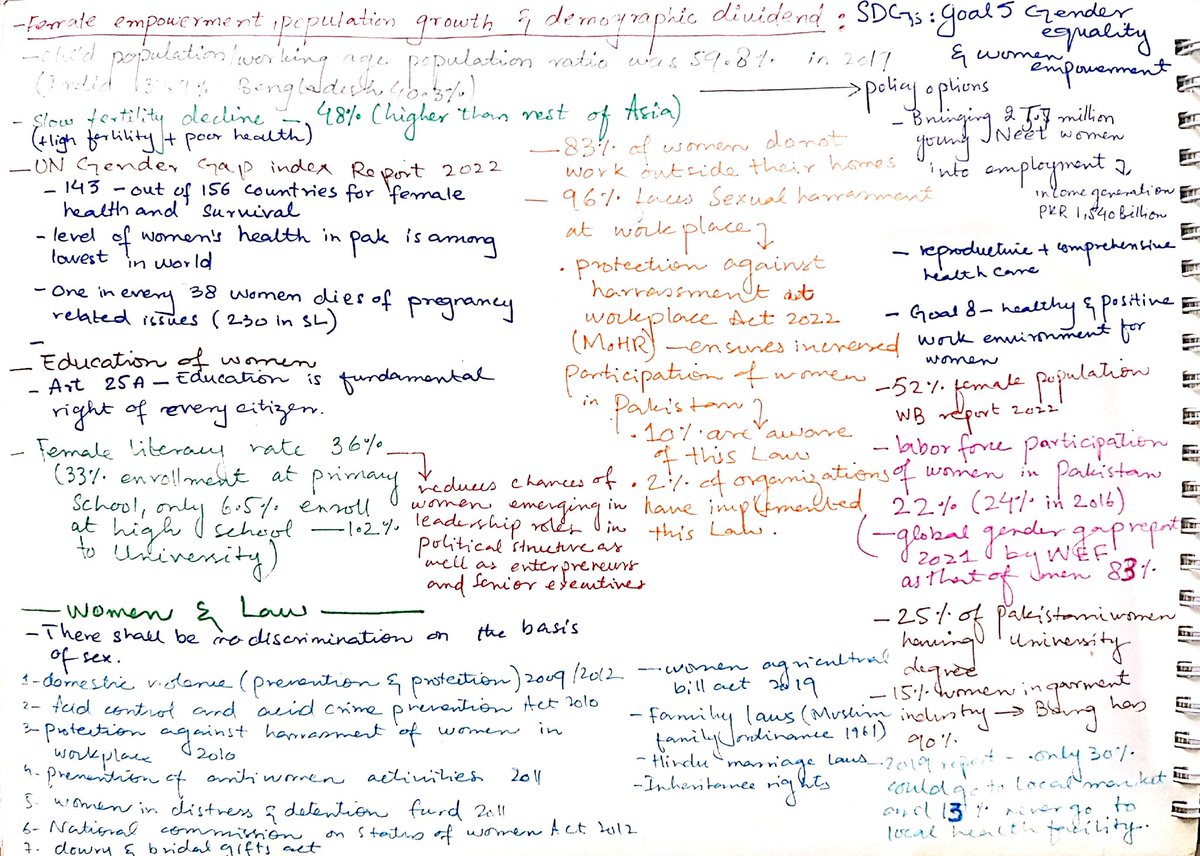 -Female empowerment, population growth & demographic dividend :
- child population/working age population ratio was 59.8% in 2017
Bangladesh 40.3%)
- Slow fertility decline - 48% (higher than rest of Asia)
(+High fertility + poor health)
- UN Gender Gap index Report 2022
- 143 - out of 156 countries for female
health and survival
- level of women's health in pak is among
lowest in world
- One in every 38 women dies of pregnancy
related issues (230 in SL)
-
- Education of women
- Art 25A - Education is fundamental
right of every citizen.
- Female literacy rate 36%
(33% enrollment at primary
School, only 6.5% enroll
at high school - 1.2%
to University)
reduces chances of
women emerging in
leadership roles in
political structure as
well as enterpreneurs
and senior executives
- 83% of women donot
work outside their homes
- 96% faces Sexual harrasment
at workplace
. protection against
harrassment at
workplace Act 2022
(MoHR) - ensures increased
participation of women
in Pakistan
. 10% are aware
of this Law
. 2% of organizations
have implemented
this Law.
SDGs : Goal 5 Gender
equality
& women
empowerment
policy options
- Bringing 2 million
young Neet women
into employment
income generation
PKR 1,540 Billion
- reproductive + comprehensive
health care
- Goal 8 - healthy & positive
work environment for
women
- 52% female population
WB report 2022
- labor force participation
of women in Pakistan
22% (24% in 2016)
(- global gender gap report
2021 by WEF
as that of men 83%
- 25% of Pakistani women
having University
degree
- 15% women in garment
industry → Bang has
90%
- 2019 report - only 30%
could go to local market
and 13% never go to
local health facility.
- Women & Law -
- There shall be no discrimination on the basis
of sex.
1- domestic violence (prevention & protection) 2009/2012
2- Acid control and acid crime prevention Act 2010
3- protection against harrasment of women in
workplace 2010
4- prevention of anti women activities 2011
5- women in distress & detention fund 2011
6- National commission on Status of women Act 2012
7- dowry & bridal gifts act
- women agricultral
bill act 2019
- Family laws (Muslim
family ordinance 1961)
- Hindu marriage laws
- Inheritance rights